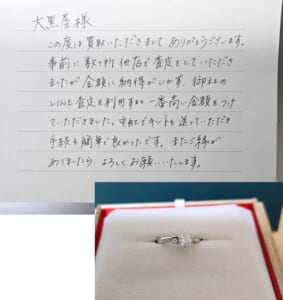 大黒屋様
この度は買取いただきまして ありがとうございます。
事前に数ヶ所他店で査定をしていただき
ましたが金額に納得がいかず、御社の
LINE査定を利用すると一番高い金額をつけ
ていただきました。宅配でキットも送っていただき
手続も簡単で良かったです。またご縁が
ありましたら、よろしくお願いいたします。